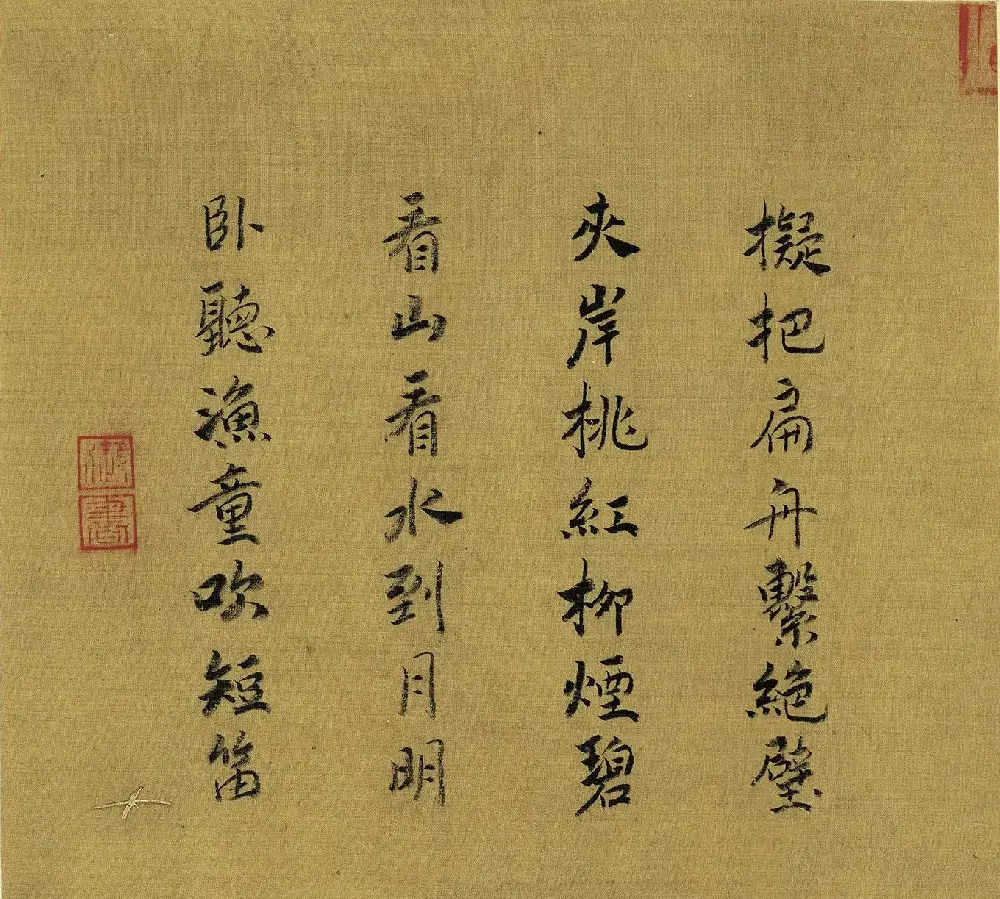 擬把扁舟繫絶壁
夾岸桃紅柳煙碧
看山看水到月明
卧聽漁童吹短笛